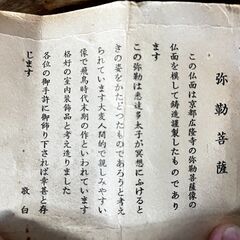 弥勒菩薩
この仏面は京都広隆寺の弥勒菩薩像の
仏面を模して鋳造謹製したものであり
ます
この弥勒は悉達多太子が冥想にふけると
きの姿をかたどつたものであろうと考え
られています大変人間的で親しみやすい
像で飛鳥時代末期の作といわれています
格好の室内装飾品と考え造りました
各位の御手許に御飾り下されば幸甚と存
じます
敬白